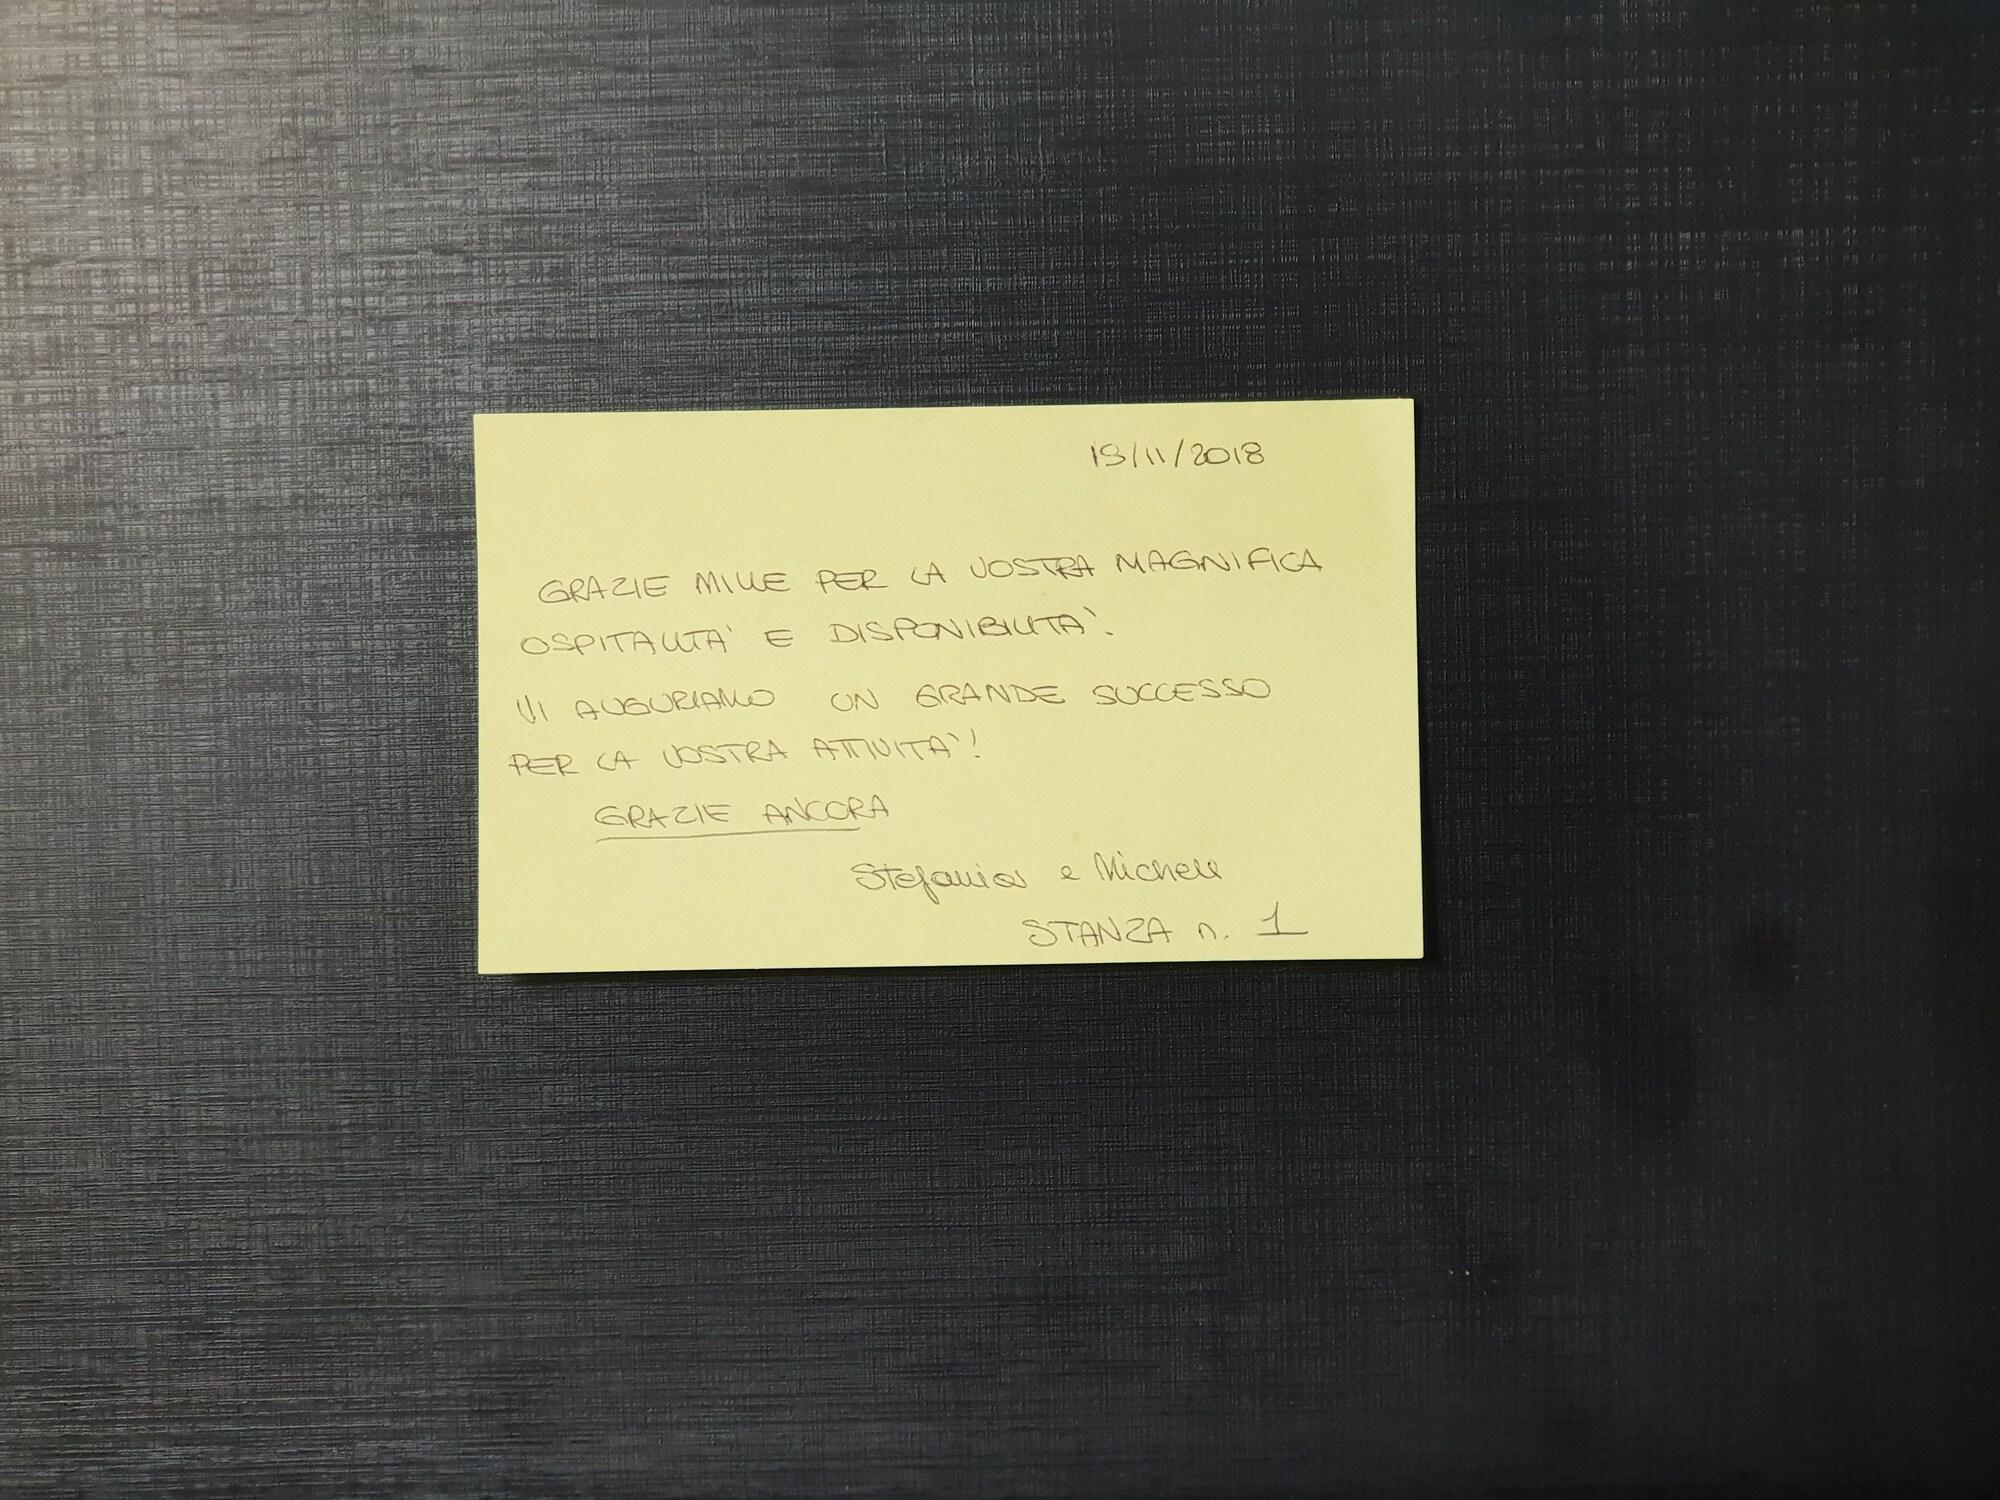 19/11/2018
GRAZIE MILLE PER LA VOSTRA MAGNIFICA
OSPITALITA' E DISPONIBILITA'.
VI AUGURIAMO UN GRANDE SUCCESSO
PER LA VOSTRA ATTIVITA'!
GRAZIE ANCORA
Stefania e Michele
STANZA n. 1